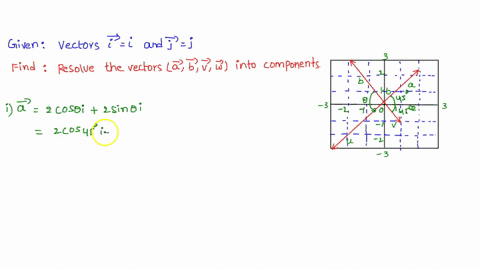 Given: Vectors i⃗ = i and j⃗ = j
Find: Resolve the vectors (a⃗, b⃗, v⃗, w⃗) into components
i) a⃗ = 2cosθi + 2sinθi
= 2cos45° i-
3
2
b
a
45
θ
-3 -2 -1 0 3
45
-1
v
-2
μ
-3